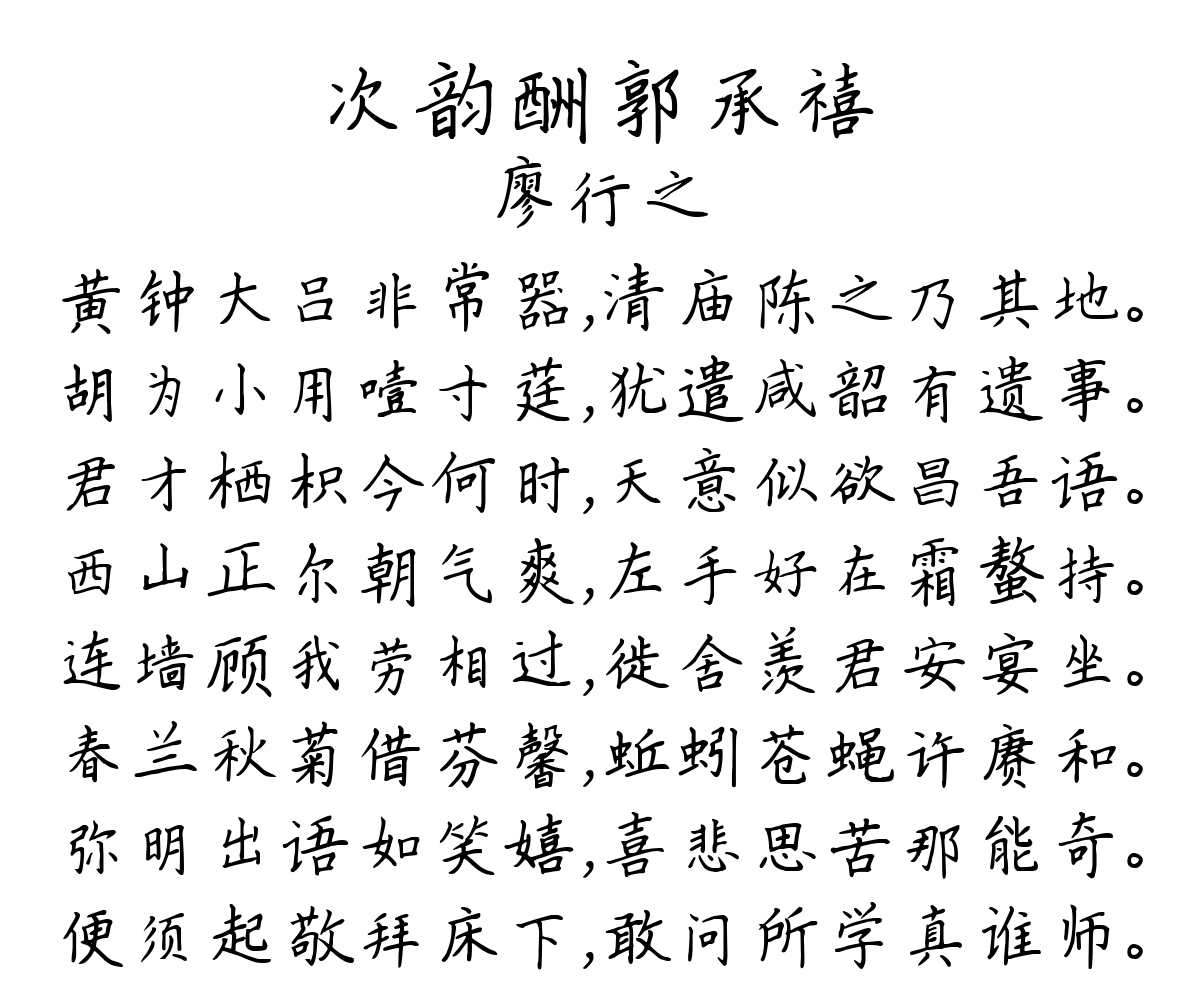 次韵酬郭承禧
廖行之
黄钟大吕非常器,清庙陈之乃其地。
胡为小用噎寸莛,犹遣咸韶有遗事。
君才栖枳今何时,天意似欲昌吾语。
西山正尔朝气爽,左手好在霜螯持。
连墙顾我劳相过,徙舍羡君安宴坐。
春兰秋菊借芬馨,蚯蚓苍蝇许赓和。
弥明出语如笑嬉,喜悲思苦那能奇。
便须起敬拜床下,敢问所学真谁师。